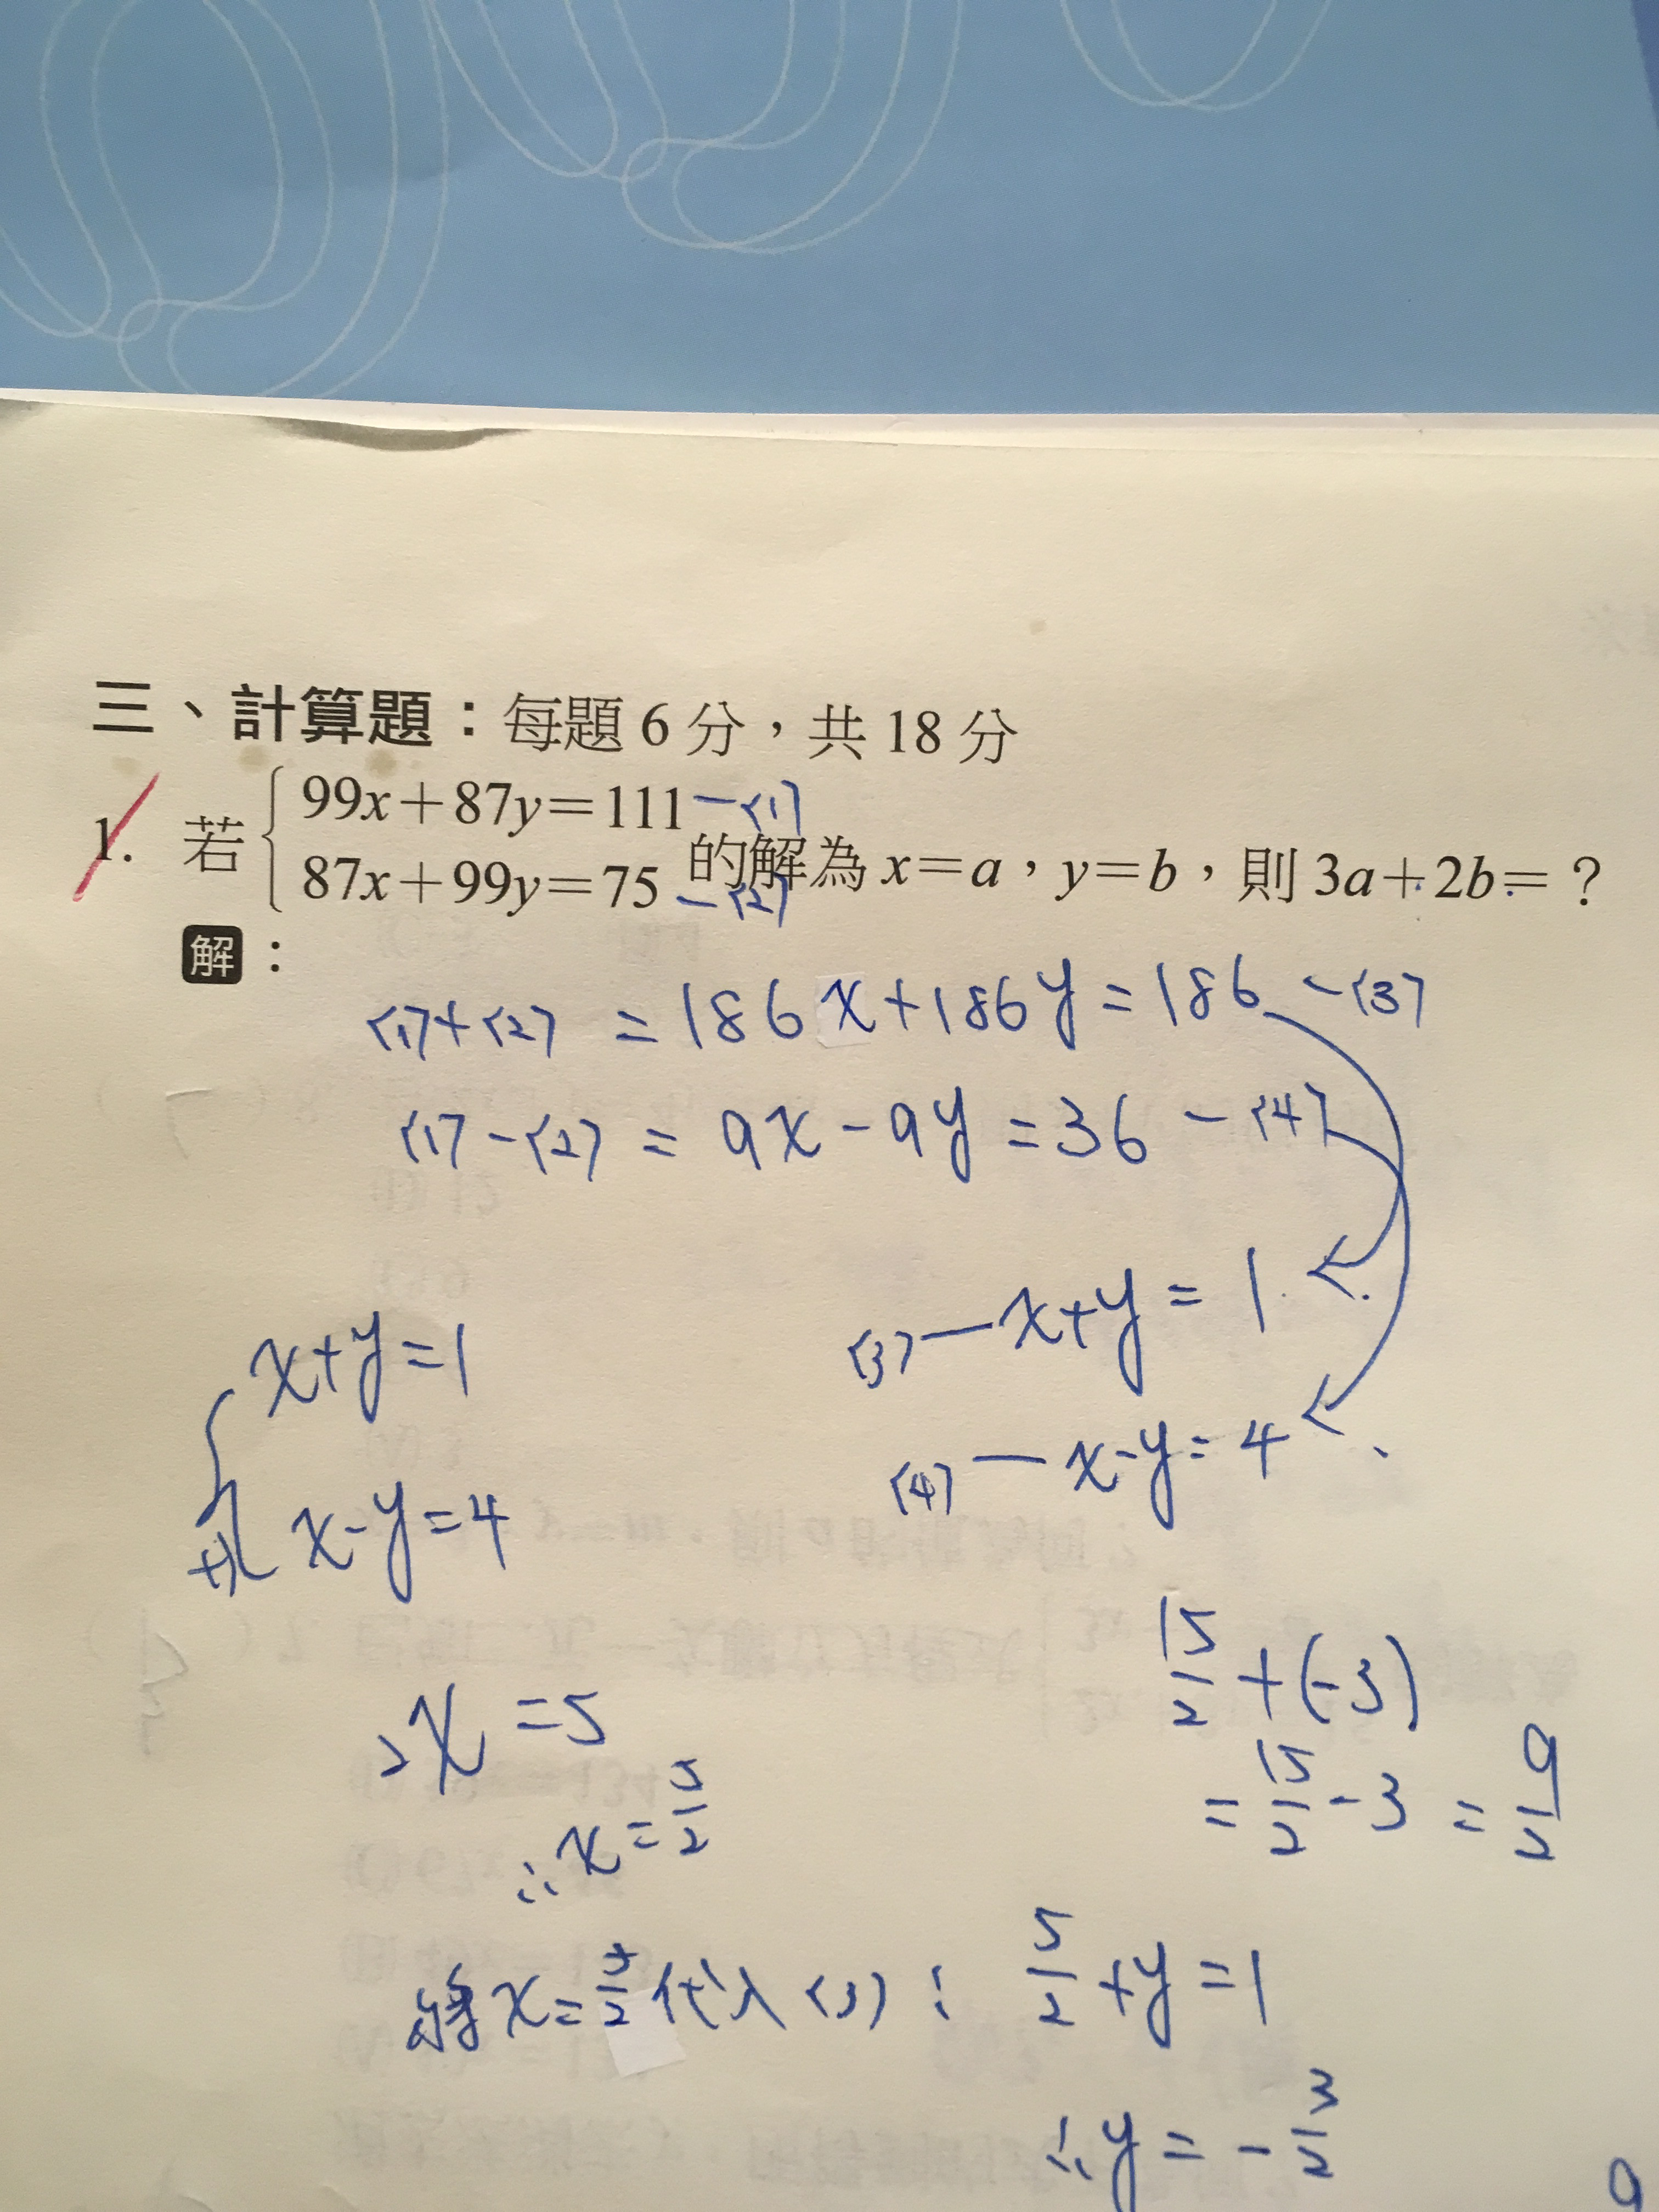 三、計算題：每題 6 分，共 18 分
1. 若 { 99x+87y=111 —(1)
87x+99y=75 —(2) 的解為 x=a，y=b，則 3a+2b=？
解：
(1)+(2) = 186x+186y=186 —(3)
(1)-(2) = 9x-9y=36 —(4)
(3) — x+y=1
(4) — x-y=4
x+y=1
+) x-y=4
2x=5
∴x=5/2
15/2+(-3)
=15/2-3=9/2
將x=5/2代入(3)：5/2+y=1
∴y=-3/2
9